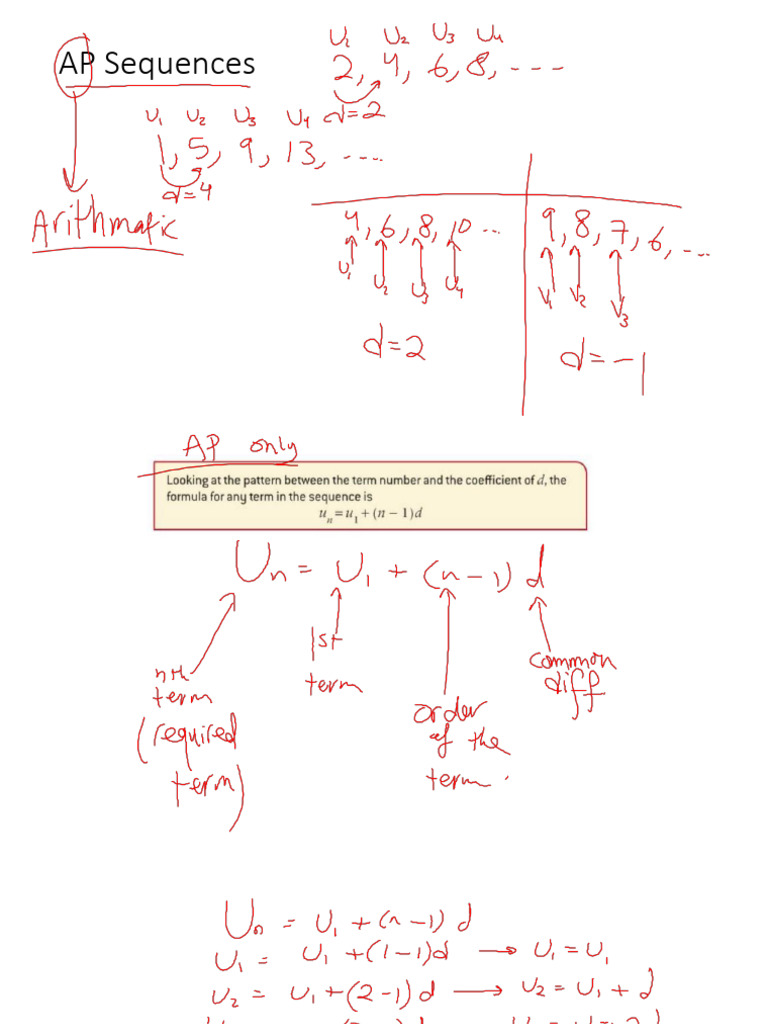 AP Sequences
U1 U2 U3 U4
2, 4, 6, 8, ---
d=2
U1 U2 U3 U4
1, 5, 9, 13, ....
d=4
Arithmatic
4, 6, 8, 10 ...
U1 U2 U3 U4
d=2
9, 8, 7, 6, ...
U1 U2 U3
d=-1
AP only
Looking at the pattern between the term number and the coefficient of d, the
formula for any term in the sequence is
un=u1+(n-1)d
Un = U1 + (n-1) d
nth
term
(required
term)
1st
term
order
of the
term.
common
diff
Un = U1 + (n-1) d
U1 = U1 +(1-1)d → U1 = U1
U2 = U1+(2-1) d → U2 = U1 + d